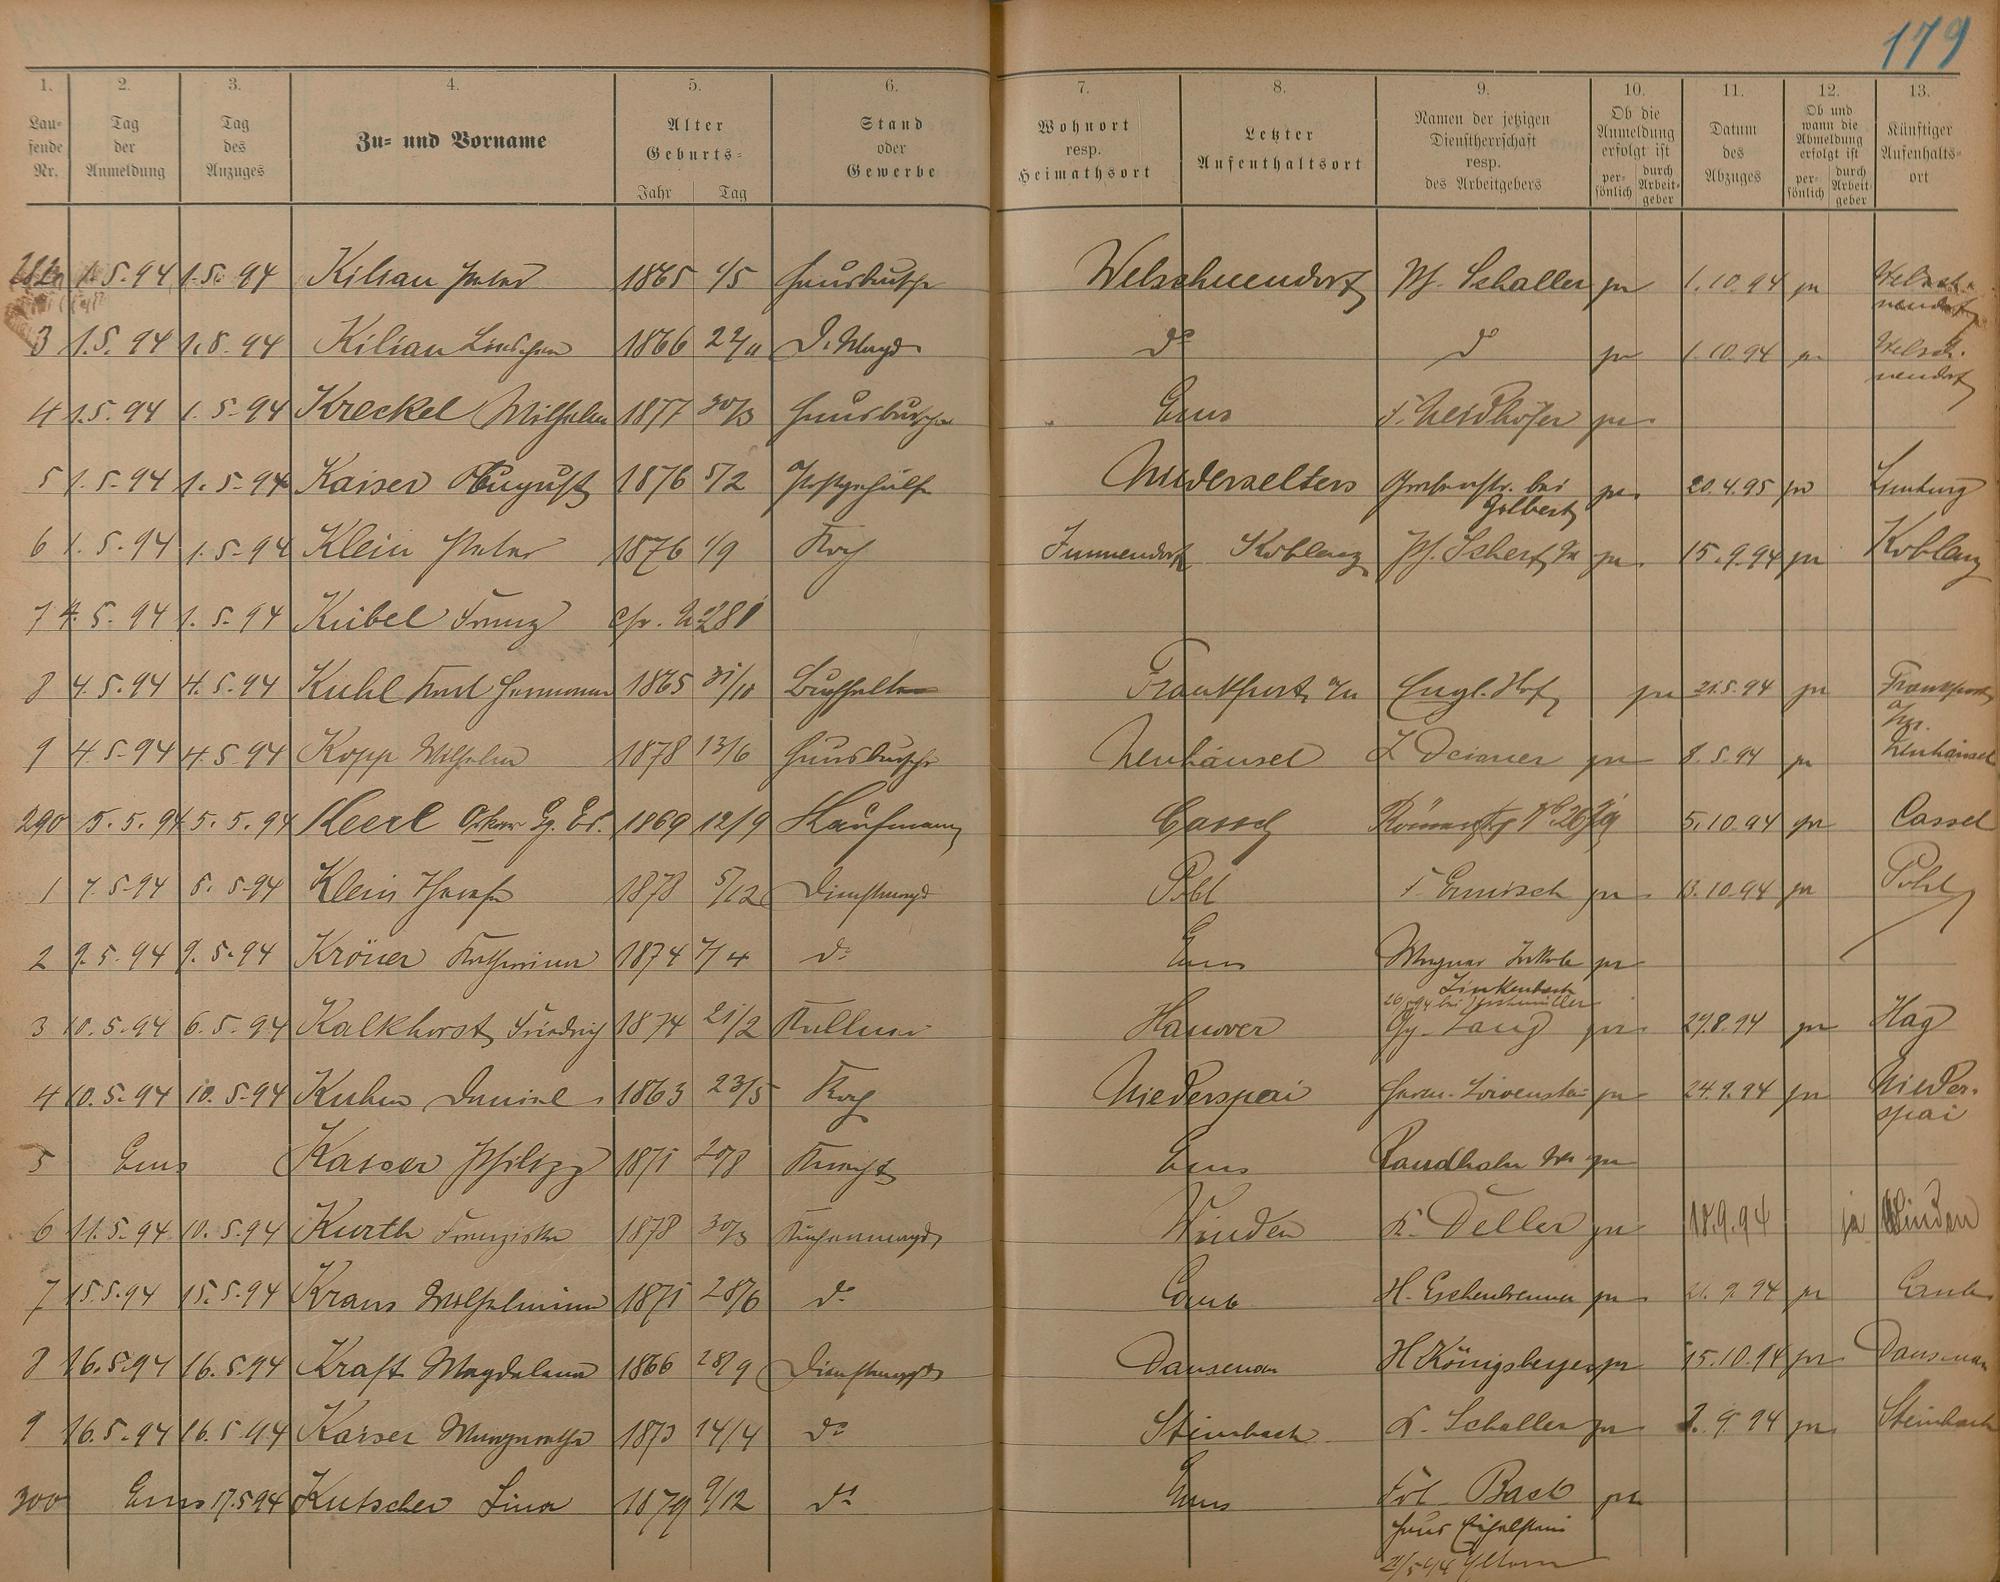 179
1. 2. 3. 4. 5. 6. 7. 8. 9. 10. 11. 12. 13.
Laufende Nr. Tag der Anmeldung Tag des Anzuges Zu- und Vorname Alter Geburts- Jahr Tag Stand oder Gewerbe Wohnort resp. Heimathsort Letzter Aufenthaltsort Namen der jetzigen Dienstherrschaft resp. des Arbeitgebers Ob die Anmeldung erfolgt ist persönlich durch Arbeitgeber Datum des Abzuges Ob und wann die Abmeldung erfolgt ist persönlich durch Arbeitgeber Künftiger Aufenhalts-ort
1.5.94 1.5.94 Kilian Peter 1865 1/5 Hausbursche Welschneudorf Schaller pr 1.10.94 pr Welschneudorf
3 1.5.94 1.5.94 Kilian 1866 22/11 D. Magd do do pr 1.10.94 pr Welschneudorf
4 1.5.94 1.5.94 Kreckel Wilhelm 1877 30/3 Hausbursche Ems F. Neidhöfer pr
5 1.5.94 1.5.94 Kaiser August 1876 5/2 Postgehülfe Niederselters bei Gilbert pr 20.4.95 pr Limburg
6 1.5.94 1.5.94 Klein Peter 1876 1/9 Koch Immendorf Koblenz pr 15.9.94 pr Koblenz
7 4.5.94 1.5.94 Kübel Franz cfr. No 281
8 4.5.94 4.5.94 Kuhl Karl Hermann 1865 31/10 Buchhalter Frankfurt a/M Engl. Hof pr 21.5.94 pr Frankfurt a/M.
9 4.5.94 4.5.94 Kopp Wilhelm 1878 13/6 Hausbursche Neuhäusel Deisner pr 8.5.94 pr Neuhäusel
290 5.5.94 5.5.94 Keerl Oskar Gg. Ed. 1869 12/9 Kaufmann Cassel Römerstr No 26 5.10.94 pr Cassel
1 7.5.94 5.5.94 Klein 1878 5/12 Dienstmagd Pohl F. Ermisch pr 13.10.94 pr Pohl
2 9.5.94 9.5.94 Kröner Katharina 1874 7/4 do Ems Wagner pr
Linkenbach
3 10.5.94 6.5.94 Kalkhorst Friedrich 1874 21/2 Kellner Hanover Gg. Lang pr 29.8.94 pr Hag
4 10.5.94 10.5.94 Kuhn Daniel 1863 23/5 Koch Niederspai Löwenstein pr 24.9.94 pr Niederspai
5 Ems Kaiser Philipp 1871 20/8 Knecht Ems pr
6 11.5.94 10.5.94 Kurth Franziska 1878 30/3 Küchenmagd Winden Deller pr 18.9.94 ja Winden
7 15.5.94 15.5.94 Kraus Wilhelmine 1871 28/6 do H. Eschenbrenner pr 21.9.94 pr
8 16.5.94 16.5.94 Kraft Magdalena 1866 28/9 Dienstmagd Dausenau H Königsberger pr 15.10.94 pr Dausenau
9 16.5.94 16.5.94 Kaiser Margarethe 1873 14/4 do Steinbach Schaller pr 2.9.94 pr Steinbach
300 Ems 17.5.94 Kutscher Lina 1879 9/12 do Ems Bach pr
Haus